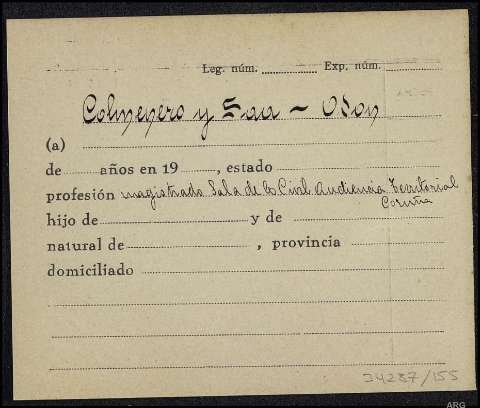 Leg. núm. Exp. núm.
Colmenero y Saa - Odon
(a)
de años en 19 , estado
profesión magistrado Sala de lo Civil Audiencia Territorial
Coruña
hijo de y de
natural de , provincia
domiciliado
24237/155
ARG